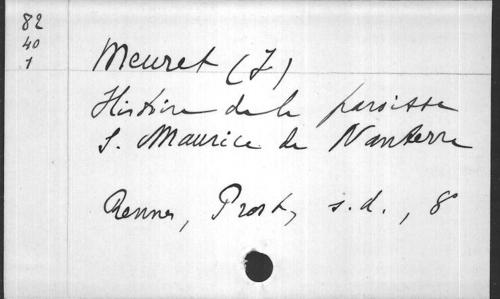 82
40
1
Meuret (J)
Histoire de la paroisse
S. Maurice de Nanterre
Rennes, Prost, s.d., 8°